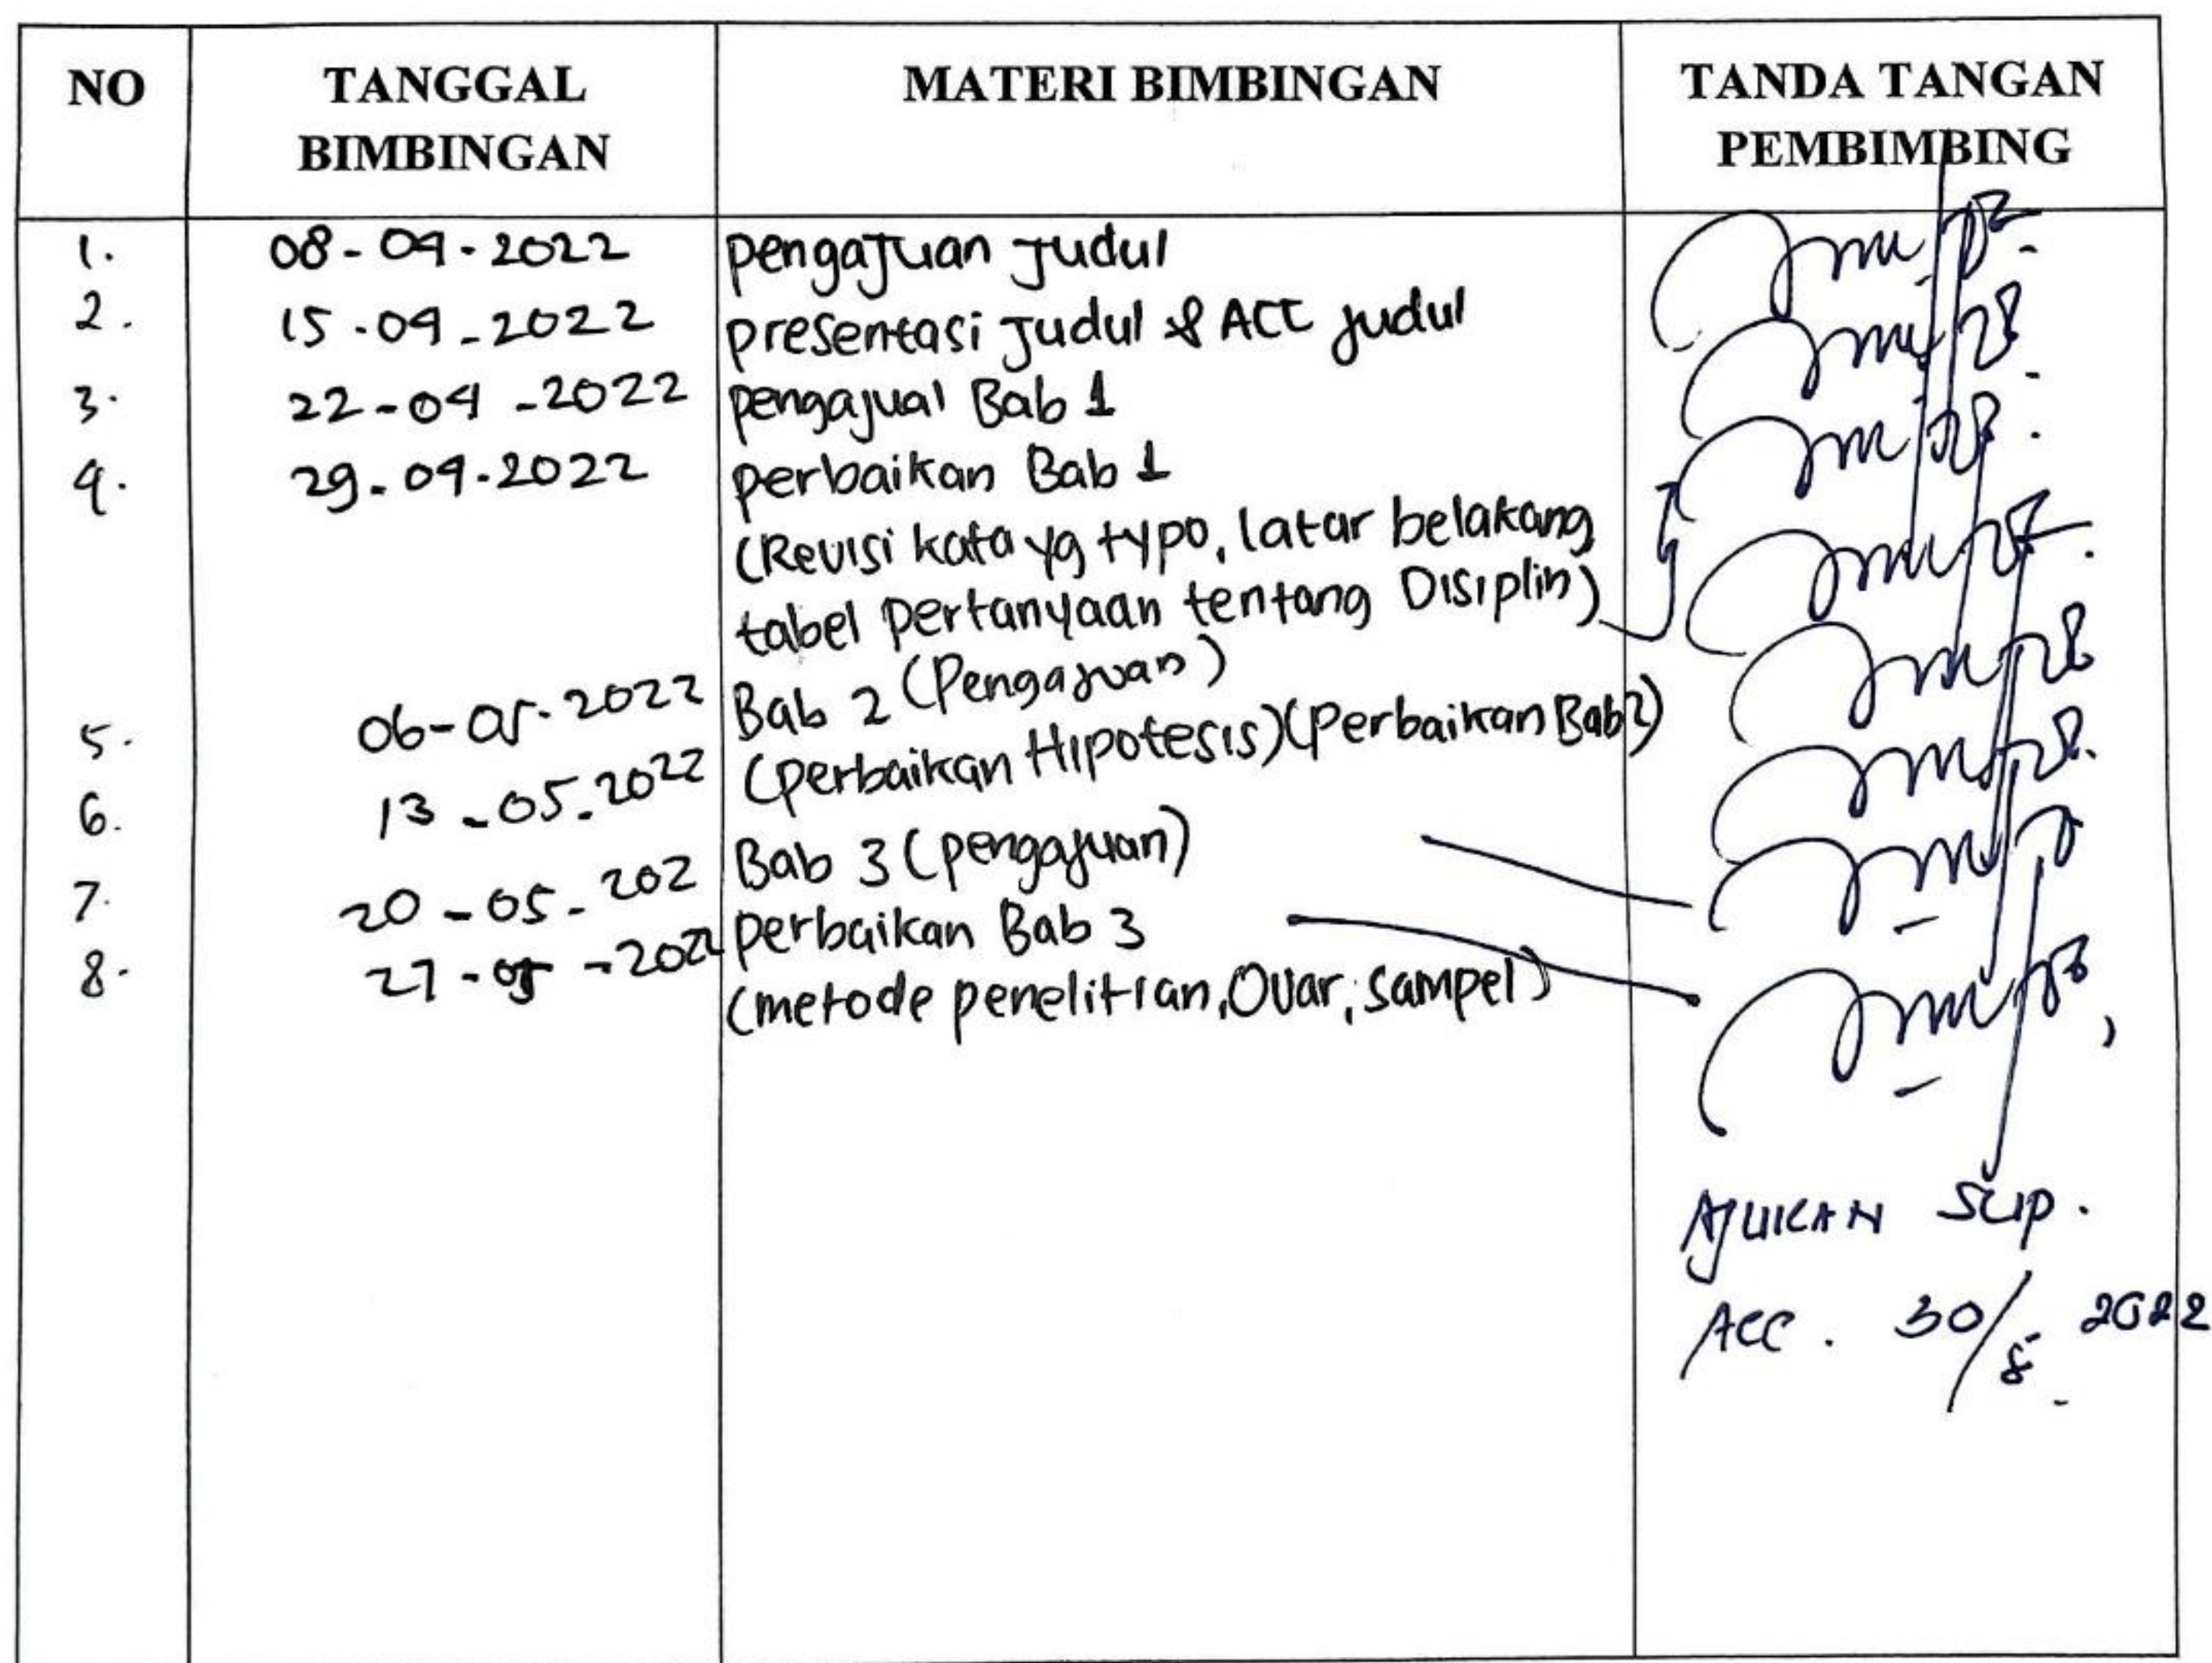 NO
TANGGAL BIMBINGAN
MATERI BIMBINGAN
TANDA TANGAN PEMBIMBING
1. 08-04-2022 pengajuan judul
2. 15-04-2022 presentasi judul & ACC judul
3. 22-04-2022 pengajual Bab 1
4. 29-04-2022 perbaikan Bab 1
(Revisi kata yg typo, latar belakang
tabel pertanyaan tentang Disiplin)
5. 06-05-2022 Bab 2 (Pengajuan)
6. 13-05-2022 (perbaikan Hipotesis) (Perbaikan Bab 2)
7. 20-05-202 Bab 3 (pengajuan)
8. 27-05-2022 perbaikan Bab 3
(metode penelitian, OVar, sampel)
AJUKAN SUP.
ACC. 30/5 2022